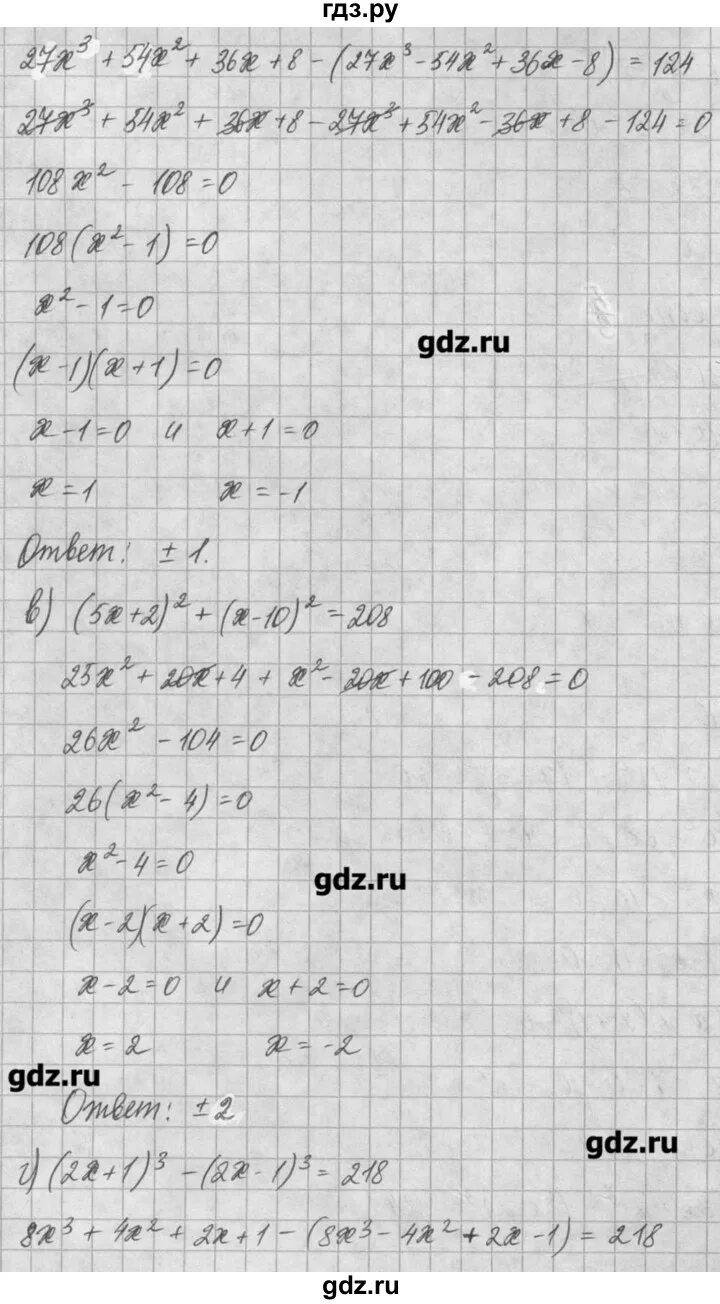 гдз.ру
27x³ + 54x² + 36x + 8 - (27x³ - 54x² + 36x - 8) = 124
27x³ + 54x² + 36x + 8 - 27x³ + 54x² - 36x + 8 - 124 = 0
108x² - 108 = 0
108(x² - 1) = 0
x² - 1 = 0
gdz.ru
(x - 1)(x + 1) = 0
x - 1 = 0 и x + 1 = 0
x = 1 x = -1
Ответ: ± 1.
в) (5x + 2)² + (x - 10)² = 208
25x² + 20x + 4 + x² - 20x + 100 - 208 = 0
26x² - 104 = 0
26(x² - 4) = 0
x² - 4 = 0
gdz.ru
(x - 2)(x + 2) = 0
x - 2 = 0 и x + 2 = 0
x = 2 x = -2
gdz.ru
Ответ: ± 2
gdz.ru
г) (2x + 1)³ - (2x - 1)³ = 218
8x³ + 4x² + 2x + 1 - (8x³ - 4x² + 2x - 1) = 218
gdz.ru